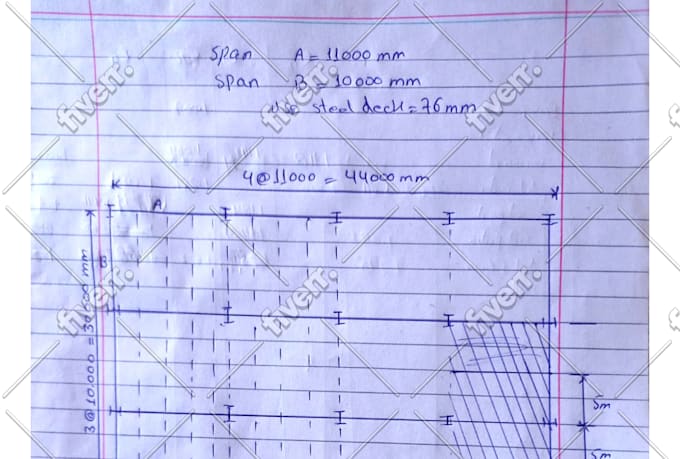 Span A = 11000 mm
Span B = 10000 mm
steel deck = 76 mm
4@11000 = 44000 mm
A
B
3@10,000 = 30,000 mm
5m
5m
fiverr.
fiverr.
fiverr.
fiverr.
fiverr.
fiverr.